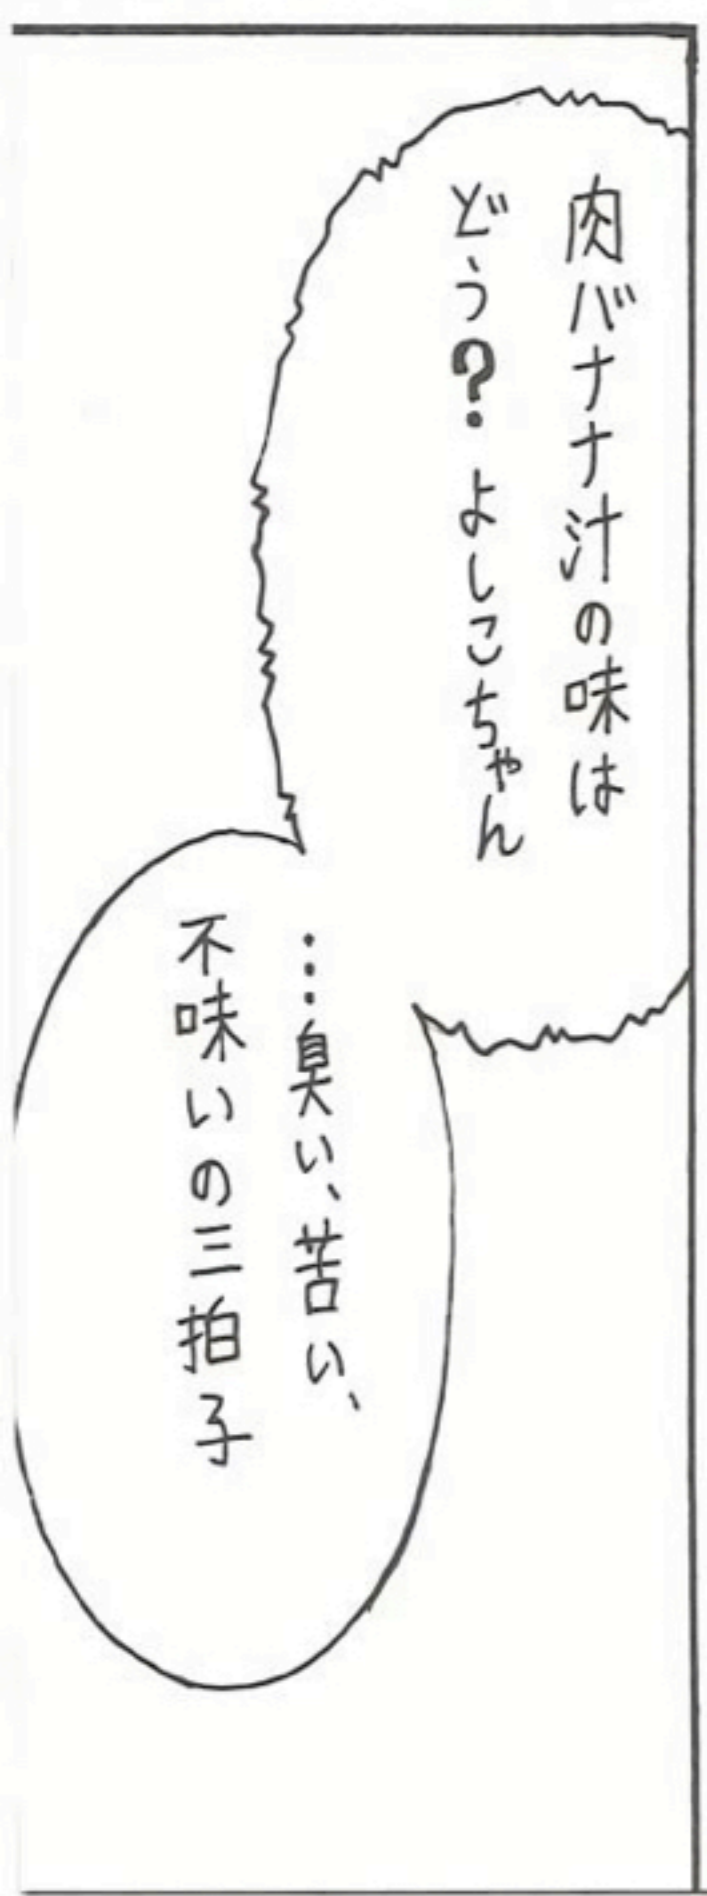 肉バナナ汁の味は
どう?よしこちゃん
…臭い、苦い、
不味いの三拍子